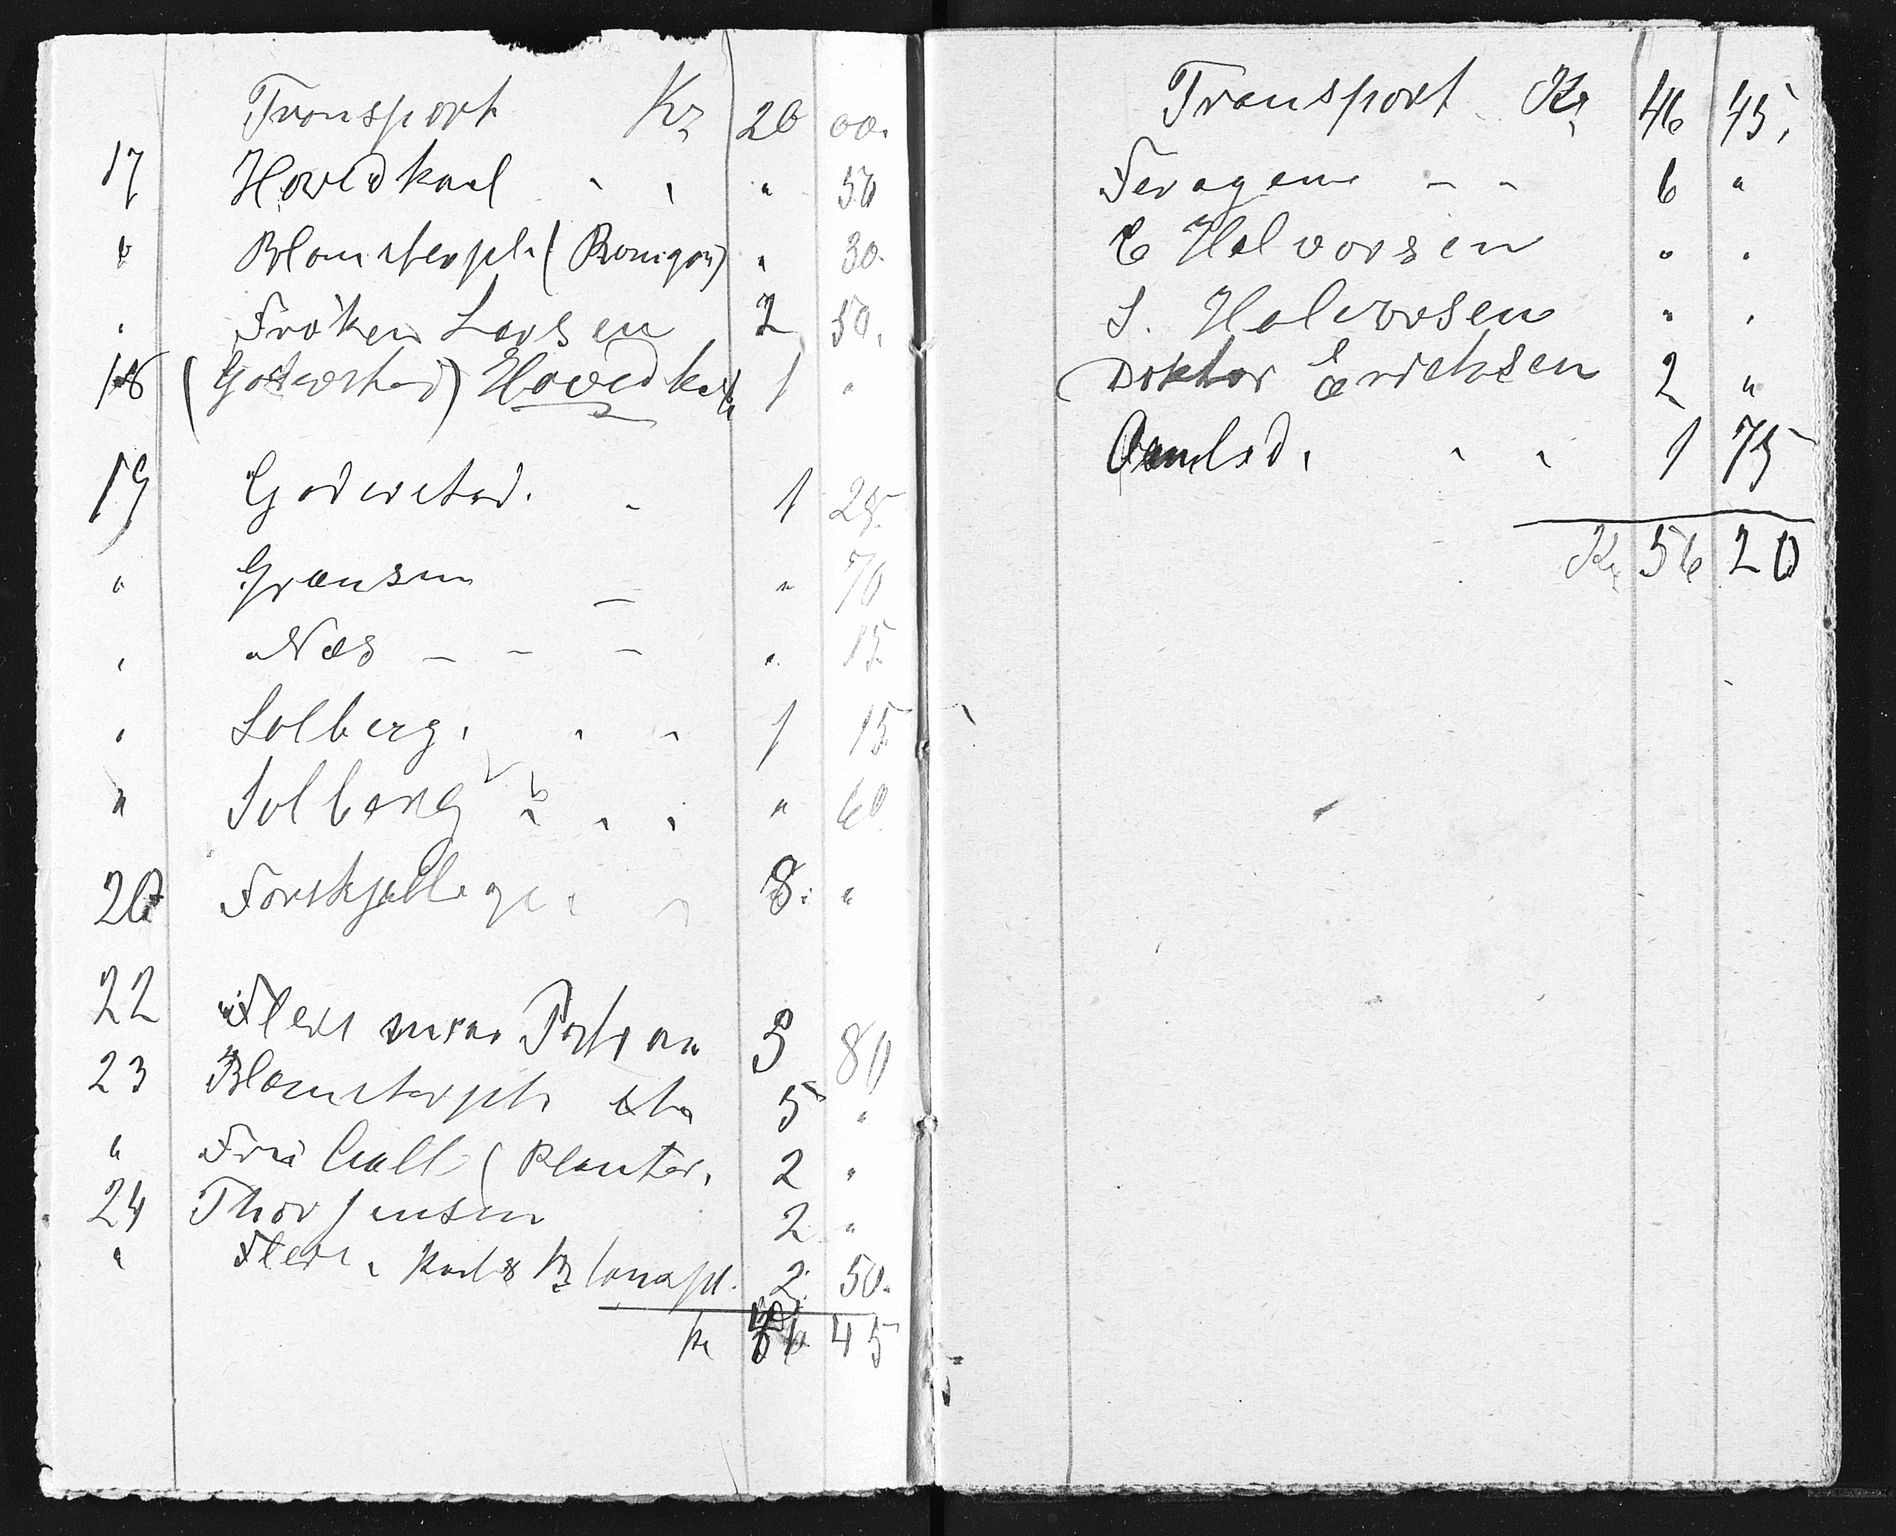 Transport Kr 20 00.
17 Hovedkaal " " " 50
" Blomsterpl. ( ) " 30.
" Frøken Larsen 2 50.
18 (Goderstad) Hovedkaal 1 "
19 Goderstad. " 1 25.
" Grænsen — " 70
" Næs — — — " 15.
" Solberg. " " 1 15
" Solberg " " " " 60
20 Forskjellige 8. "
22 Flere 3 80
23 Blomsterpl. etc 5 "
" Fru Gall (Planter. 2 "
24 Thor Jensen 2 "
" Flere Kaal & Blompl. 2. 50.
Kr 46 45
Transport Kr 46 45.
Feragen — — 6 "
E Halvorsen " "
S. Halvorsen " "
Doktor Ericksen 2 "
" " 1 75
Kr 56 20